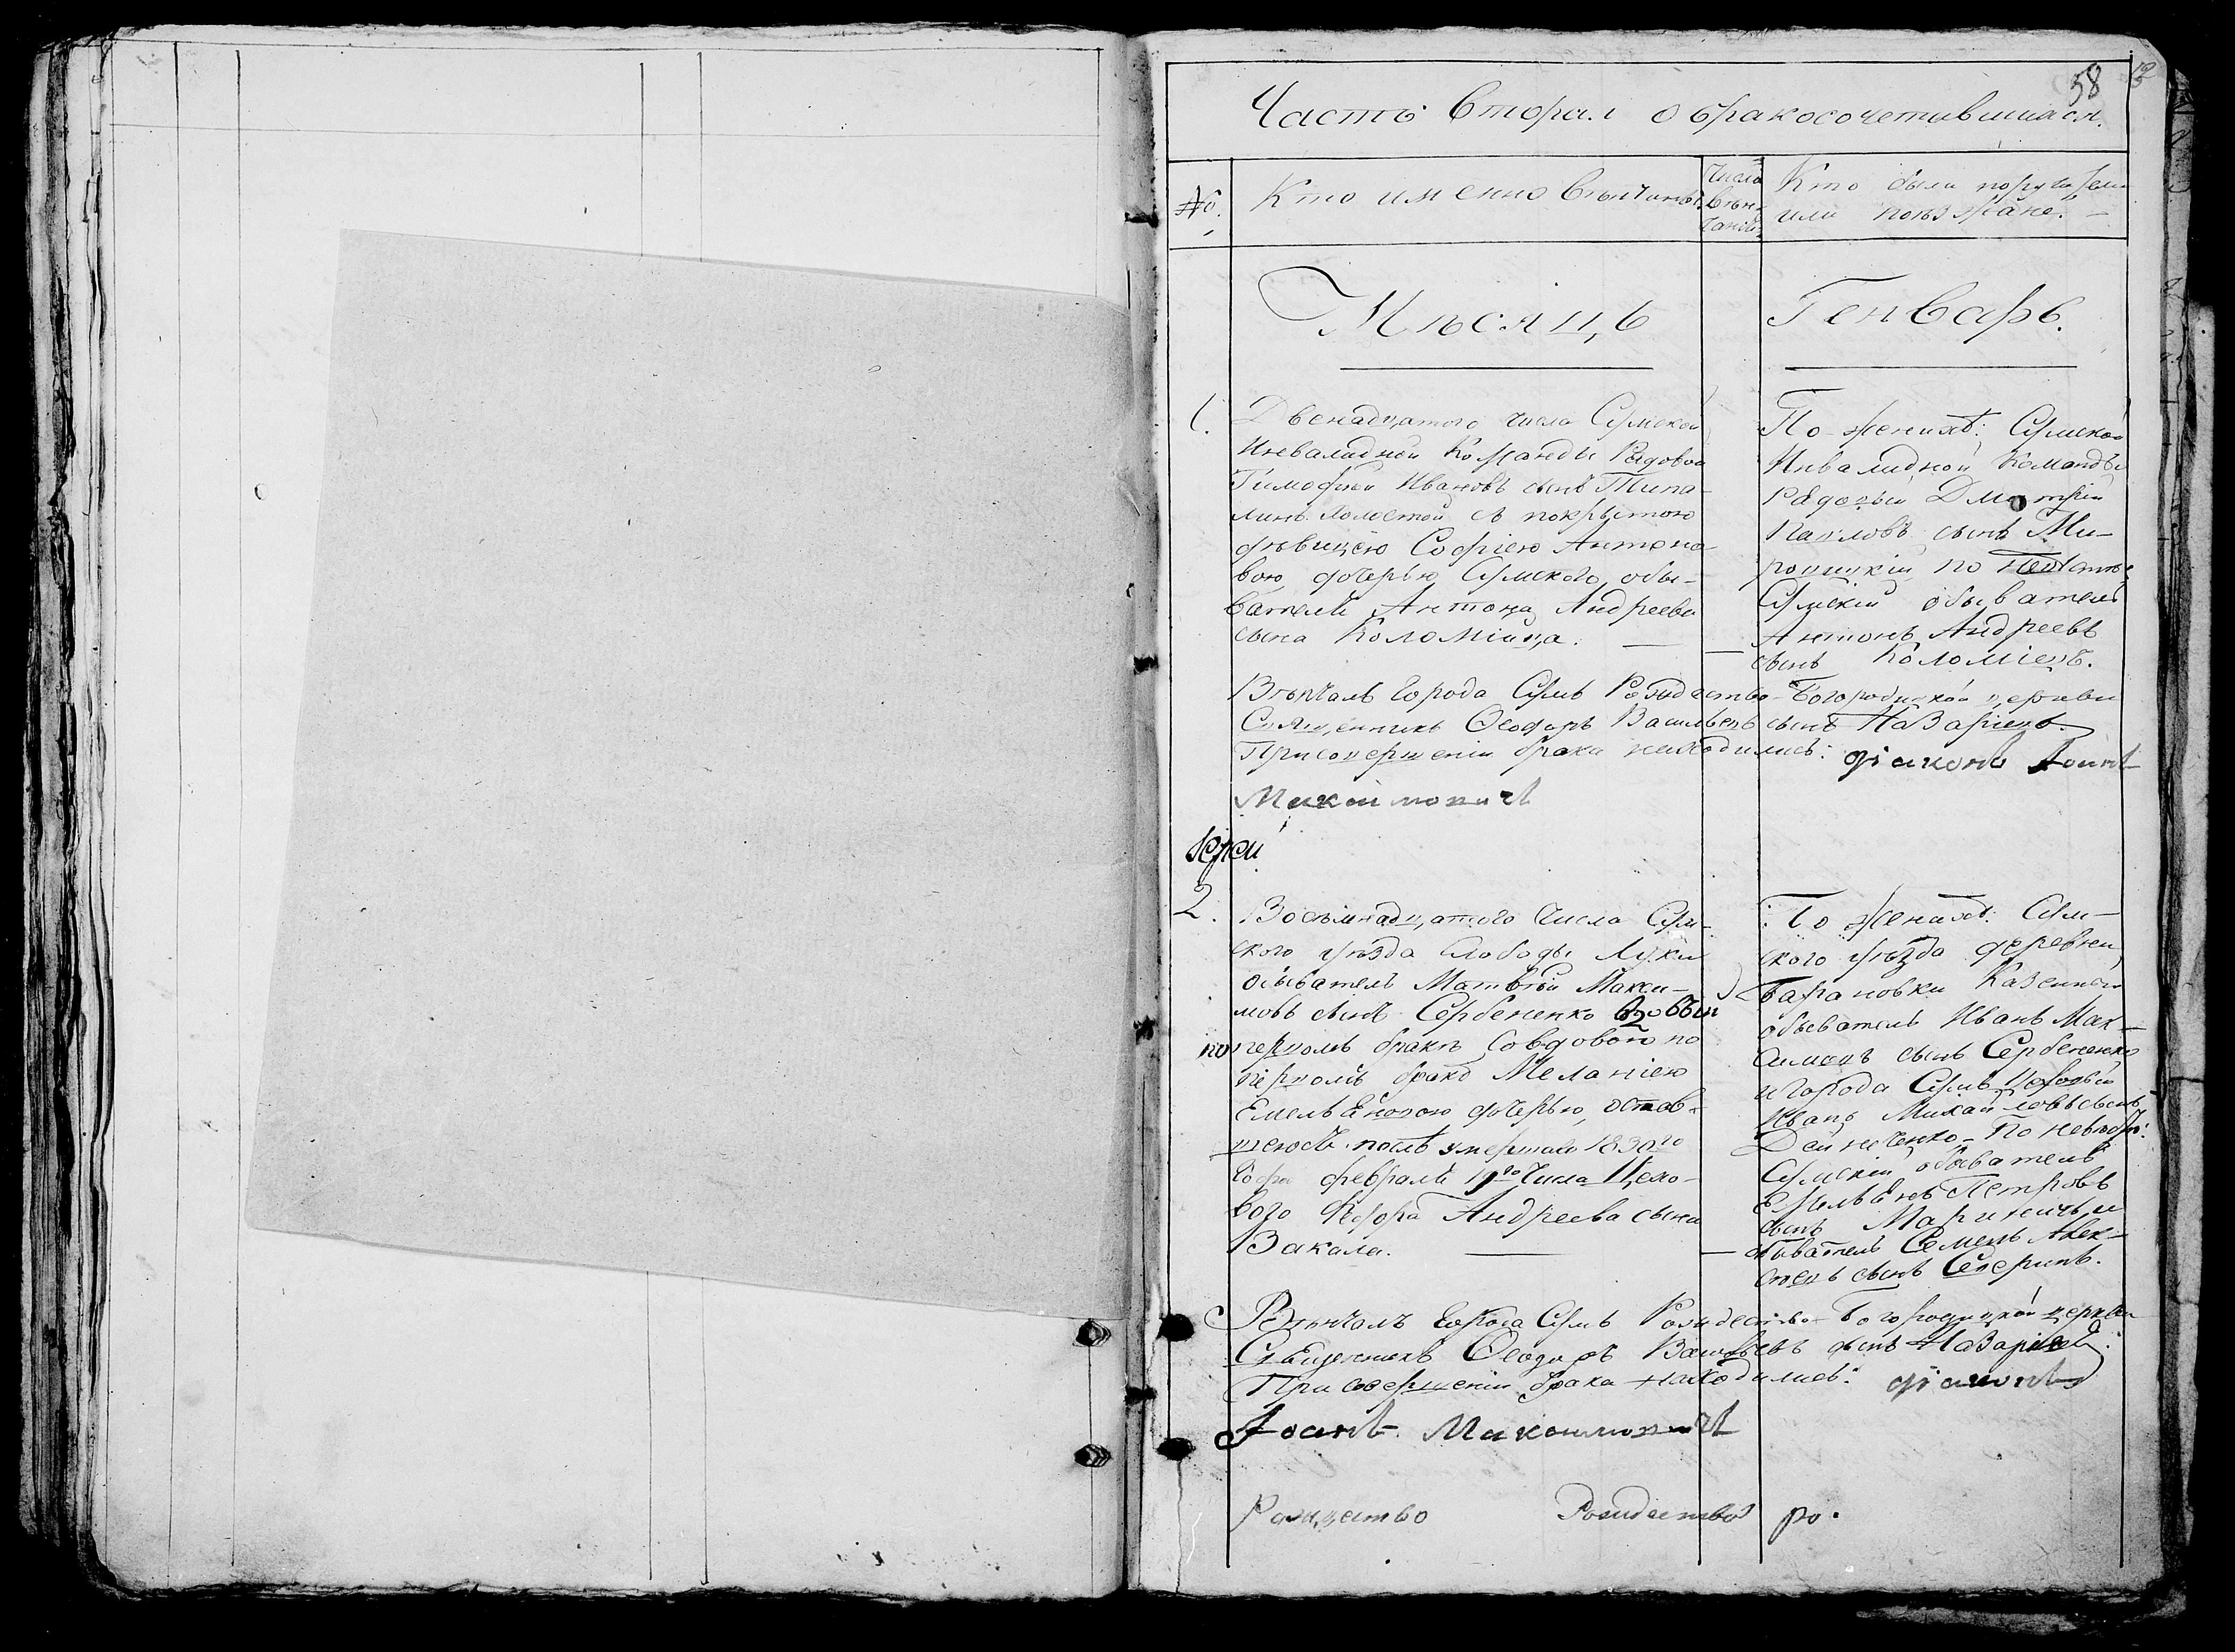 58
Часть Вторая о бракосочетавшихся.
№.
Кто именно венчаны.
Числа
Вѣн-
чаній
Кто были поручители
или поѣзжане.
Мѣсяць
Генварь.
1.
Двенадцатого числа Сумской
Инвалидной Команды Рядовой
Тимофѣй Ивановъ сынъ Типа-
линъ холостой съ покрытою
дѣвицею Софіею Антоно-
вою дочерью Сумского обы-
вателя Антона Андреева
сына Коломійца.
По женихѣ: Сумской
Инвалидной Команды
Рядовый Дмитрій
Павловъ сынъ Ми-
роницкій по невѣстѣ:
Сумскій обыватель
Антонъ Андреевъ
сынъ Коломіецъ.
Вѣнчалъ города Сумъ Рождество-Богородицкой церкви
Священникъ Ѳеодоръ Васильевъ сынъ Назаріевъ.
При совершеніи брака находились: діаконъ Іоаннъ
2.
Восѣмнадцатого числа Сум-
ского уѣзда Слободы Луки
обыватель Матвѣй Макси-
мовъ сынъ Сербененко вдовый
по первомъ бракѣ, со вдовою по
первомъ бракѣ Меланіею
Емельяновою дочерью, остав-
шеюсь послѣ умершаго 1830го
года февраля 19го числа Цехо-
вого Ѳедора Андреева сына
Закала.
По женихѣ: Сум-
ского уѣзда деревни
Барановки Казенной
обыватель Иванъ Мак-
симовъ сынъ Сербененко
и города Сумъ
Иванъ Михайловъ сынъ
Дейнеченко - по невѣстѣ:
Сумскій обыватель
Емельянъ Петровъ
сынъ и
обыватель Семенъ Алек-
сѣевъ сынъ Северинъ.
Вѣнчалъ города Сумъ Рождество-Богородицкой церкви
Священникъ Ѳеодоръ Васильевъ сынъ Назаріевъ.
При совершеніи брака находились: діаконъ
Іоаннъ
Рождество Рождество ро.